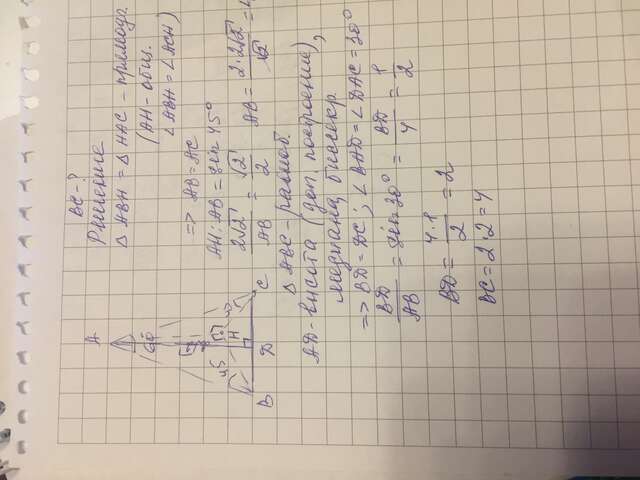 BC - ?
Решение
△ ABH = △ HAC - прямоуг.
(AH - общ.
∠ABH = ∠ACH)
=> AB = AC
AH : AB = sin 45°
2√2 / AB = √2 / 2
AB = 2·2√2 / √2 = 4
△ ABC - равноб.
AD - высота (доп. построение),
медиана, биссектр.
=> BD = DC; ∠BAD = ∠DAC = 30°
BD / AB = sin 30° = BD / 4 = 1 / 2
BD = 4·1 / 2 = 2
BC = 2·2 = 4
A
60
45
H
B
D
C